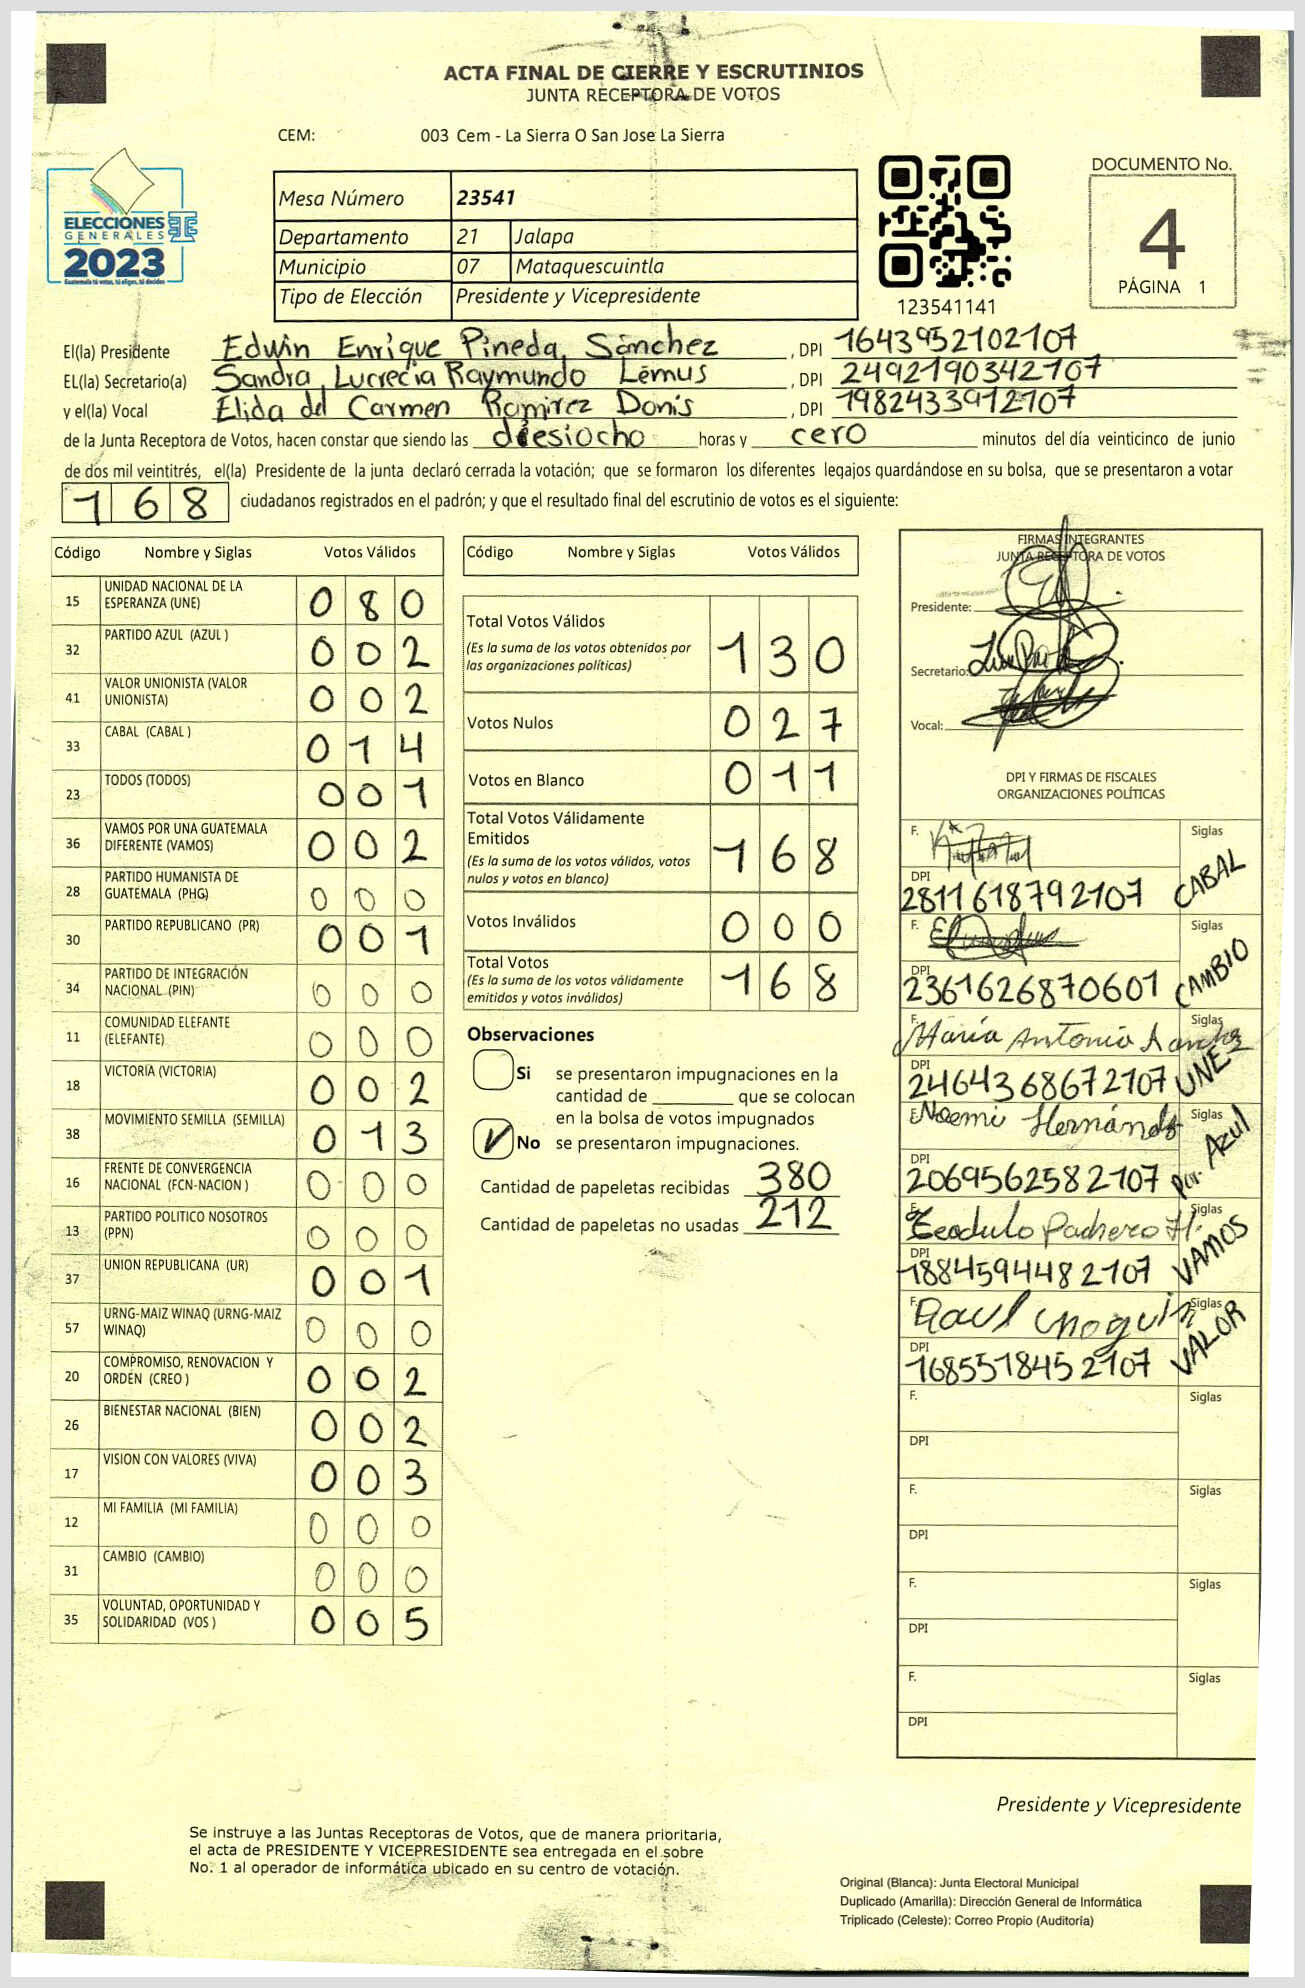 ACTA FINAL DE CIERRE Y ESCRUTINIOS
JUNTA RECEPTORA DE VOTOS
CEM: 003 Cem - La Sierra O San Jose La Sierra
ELECCIONES
GENERALES
2023
Guatemala tú votas, tú eliges, tú decides
Mesa Número 23541
Departamento 21 Jalapa
Municipio 07 Mataquescuintla
Tipo de Elección Presidente y Vicepresidente
123541141
DOCUMENTO No.
4
PÁGINA 1
El(la) Presidente Edwin Enrique Pineda Sánchez , DPI 1643952102107
EL(la) Secretario(a) Sandra Lucrecia Raymundo Lémus , DPI 2492190342107
y el(la) Vocal Elida del Carmen Ramirez Donis , DPI 1982433912107
de la Junta Receptora de Votos, hacen constar que siendo las diesiocho horas y cero minutos del día veinticinco de junio
de dos mil veintitrés, el(la) Presidente de la junta declaró cerrada la votación; que se formaron los diferentes legajos quardándose en su bolsa, que se presentaron a votar
168 ciudadanos registrados en el padrón; y que el resultado final del escrutinio de votos es el siguiente:
Código Nombre y Siglas Votos Válidos
15 UNIDAD NACIONAL DE LA ESPERANZA (UNE) 080
32 PARTIDO AZUL (AZUL ) 002
41 VALOR UNIONISTA (VALOR UNIONISTA) 002
33 CABAL (CABAL ) 014
23 TODOS (TODOS) 001
36 VAMOS POR UNA GUATEMALA DIFERENTE (VAMOS) 002
28 PARTIDO HUMANISTA DE GUATEMALA (PHG) 000
30 PARTIDO REPUBLICANO (PR) 001
34 PARTIDO DE INTEGRACIÓN NACIONAL (PIN) 000
11 COMUNIDAD ELEFANTE (ELEFANTE) 000
18 VICTORIA (VICTORIA) 002
38 MOVIMIENTO SEMILLA (SEMILLA) 013
16 FRENTE DE CONVERGENCIA NACIONAL (FCN-NACION ) 000
13 PARTIDO POLITICO NOSOTROS (PPN) 000
37 UNION REPUBLICANA (UR) 001
57 URNG-MAIZ WINAQ (URNG-MAIZ WINAQ) 000
20 COMPROMISO, RENOVACION Y ORDEN (CREO ) 002
26 BIENESTAR NACIONAL (BIEN) 002
17 VISION CON VALORES (VIVA) 003
12 MI FAMILIA (MI FAMILIA) 000
31 CAMBIO (CAMBIO) 000
35 VOLUNTAD, OPORTUNIDAD Y SOLIDARIDAD (VOS ) 005
Código Nombre y Siglas Votos Válidos
Total Votos Válidos 130
(Es la suma de los votos obtenidos por
las organizaciones políticas)
Votos Nulos 027
Votos en Blanco 011
Total Votos Válidamente
Emitidos 168
(Es la suma de los votos válidos, votos
nulos y votos en blanco)
Votos Inválidos 000
Total Votos 168
(Es la suma de los votos válidamente
emitidos y votos inválidos)
Observaciones
Si se presentaron impugnaciones en la
cantidad de ________ que se colocan
en la bolsa de votos impugnados
No se presentaron impugnaciones.
Cantidad de papeletas recibidas 380
Cantidad de papeletas no usadas 212
FIRMAS INTEGRANTES
JUNTA RECEPTORA DE VOTOS
Presidente:
Secretario:
Vocal:
DPI Y FIRMAS DE FISCALES
ORGANIZACIONES POLÍTICAS
F. Siglas
DPI
2811618792107 CABAL
F. Siglas
DPI
2361626870601 CAMBIO
F. Maria Antonia Sanchez Siglas
DPI
2464368672107 UNE
F. Noemi Hernández Siglas
DPI
2069562582107 Par. Azul
F. Teodulo Pacheco H. Siglas
DPI
1884594482107 VAMOS
F. Raul Siglas
DPI
1685518452107 VALOR
F. Siglas
DPI
F. Siglas
DPI
F. Siglas
DPI
F. Siglas
DPI
Presidente y Vicepresidente
Se instruye a las Juntas Receptoras de Votos, que de manera prioritaria,
el acta de PRESIDENTE Y VICEPRESIDENTE sea entregada en el sobre
No. 1 al operador de informática ubicado en su centro de votación.
Original (Blanca): Junta Electoral Municipal
Duplicado (Amarilla): Dirección General de Informática
Triplicado (Celeste): Correo Propio (Auditoría)